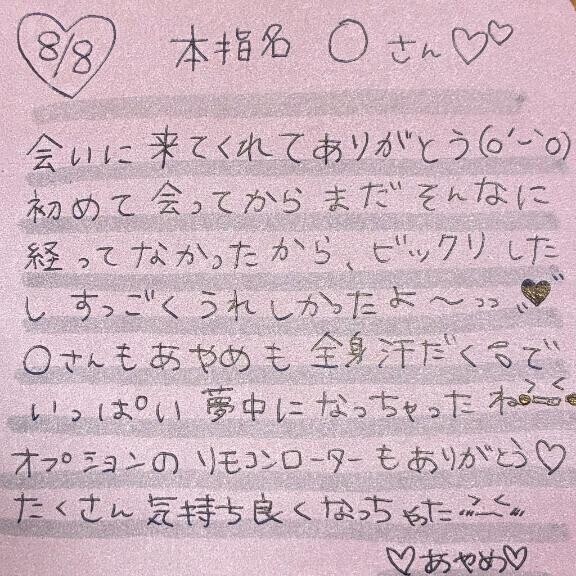 8/8 本指名 〇さん♡♡
会いに来てくれてありがとう(o´-`o)
初めて会ってからまだそんなに
経ってなかったから、ビックリした
しすっごくうれしかったよ〜っっ"♥"
〇さんもあやめも全身汗だくで
いっぱい夢中になっちゃったね
オプションのリモコンローターもありがとう♡
たくさん気持ち良くなっちゃった
♡あやめ♡